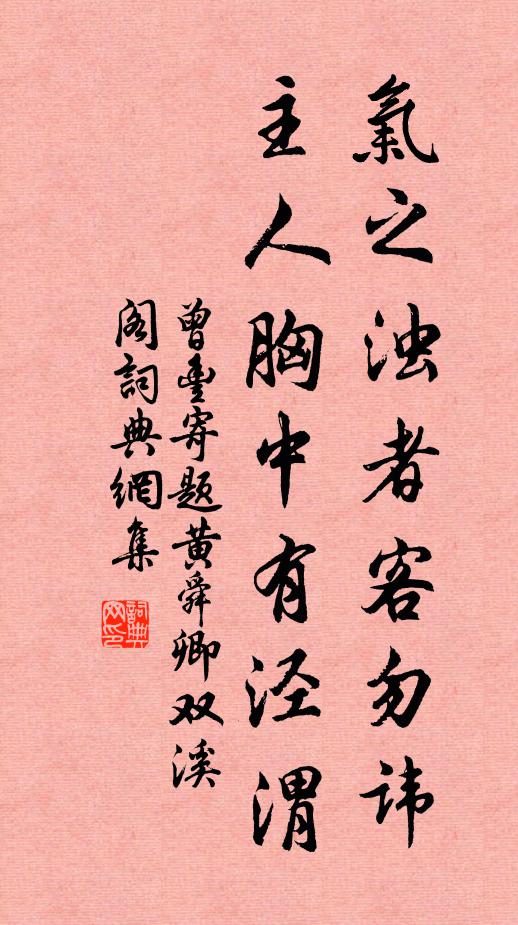 氣之浊者客勿讳
主人胸中有泾渭
曾豊寄题黄舜卿双溪
阁詞典網集
詞典網印